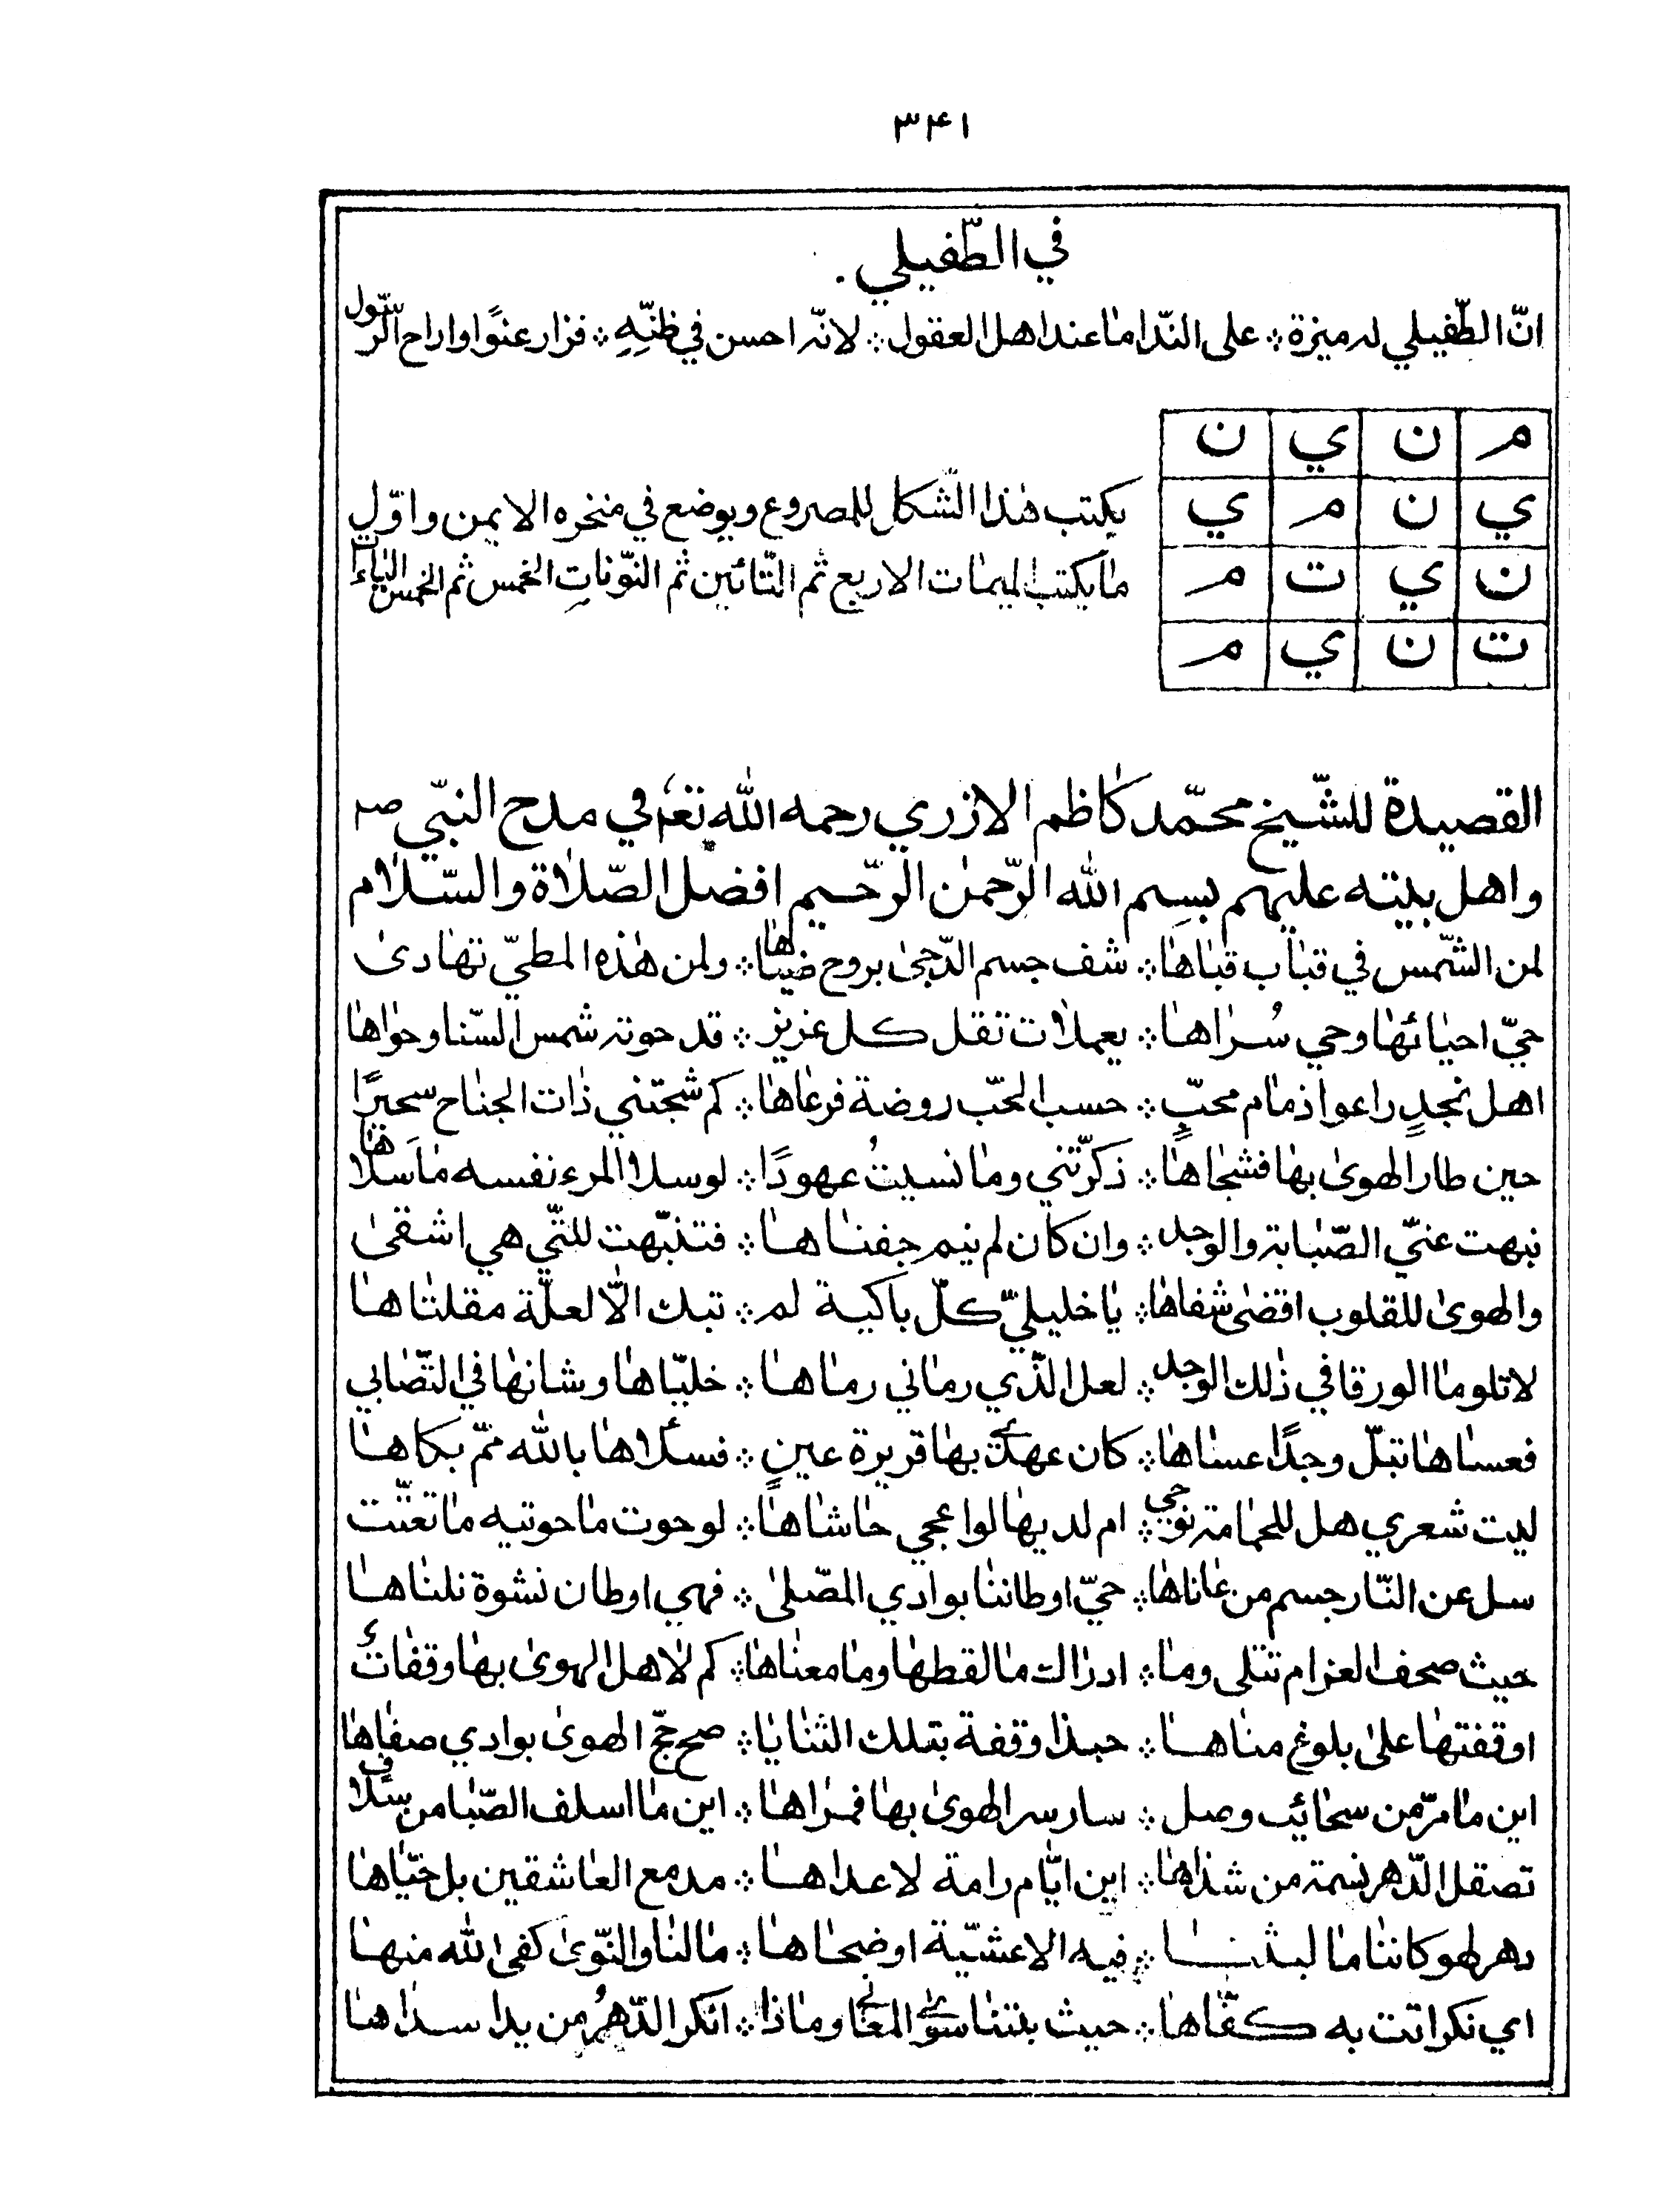 ۳۴۱
في الطّفيلي.
انّ الطّفيلي له ميزة ⁘ على النّداما عند اهل العقول ⁘ لانّه احسن في ظنّهِ ⁘ فزار عنوًا واراح الرّسّول
م ن ي ن
ي ن م ي
ن ي ت م
ت ن ي م
يكتب هٰذا الشّكل للمصروع ويوضع في منخره الايمن واوّل
ما يكتب الميمات الاربع ثم التّائين ثم النّونات الخمس ثم الياءات الخمس
القصيدة للشّيخ محمّد كاظم الازري رحمه الله تعٰ في مدح النبيّ صه
واهل بيته عليهم بسم الله الرّحمٰن الرّحيم افضل الصّلاة والسّلام
لمن الشّمس في قباب قباها ⁘ شف جسم الدّجىٰ بروح ضياها ⁘ ولمن هٰذه المطيّ تهادىٰ
حيّ احيائها وحي سُراها ⁘ يعملات تقل كل عزيز ⁘ قد حوته شمس السّنا وحواها
اهل نجدٍ راعوا ذمام محبٍّ ⁘ حسب الحبّ روضة فرعاها ⁘ كم شجّتني ذات الجناح سحيرًا
حين طار الهوىٰ بها فشجاها ⁘ ذكرّتني وما نسيتُ عهودًا ⁘ لو سلا المرء نفسه ما سَلاها
نبهت عنيّ الصّبابة والوجد ⁘ وان كان لم ينم جفناها ⁘ فتنبّهت للتّي هي اشقىٰ
والهوىٰ للقلوب اقضىٰ شفاها ⁘ يا خليليّ كلّ باكية لم ⁘ تبك الّا لعلّة مقلتاها
لا تلوما الورقا في ذٰلك الوجد ⁘ لعل الذّي رماني رماها ⁘ خليّاها وشانها في التّصابي
فعساها تبلّ وجدًا عساها ⁘ كان عهدي بها قريرة عينٍ ⁘ فسئلاها بالله ممّ بكاها
ليت شعري هل للحمامة نوحي ⁘ ام لديها لواعجي حاشاها ⁘ لو حوت ما حوتيه ما تغنّت
سل عن النّار جسم من عاناها ⁘ حيّ اوطاننا بوادي المصّلىٰ ⁘ فهي اوطان نشوة نلناها
حيث صحف الغرام تتلى وما ⁘ ادراك ما لفظها وما معناها ⁘ كم لاهل الهوىٰ بها وقفات
اوقفتها علىٰ بلوغ مناها ⁘ حبذا وقفة بتلك الثنايا ⁘ صح حجّ الهوىٰ بوادي صفاها
اين ما مرّ من سحائب وصل ⁘ سار سر الهوىٰ بها فمراها ⁘ اين ما اسلف الصّبا من سلاف
تصقل الدّهر نسمة من شذاها ⁘ اين ايّام رامة لا عداها ⁘ مدمع العاشقين بل حيّاها
دهر لهو كاننا ما لبثنا ⁘ فيه الا عشيّة او ضحاها ⁘ ما لنا والنّوىٰ كفىٰ الله منها
اي نكر اتت به كفّاها ⁘ حيث بتنا سوىٰ المعاني وماذا ⁘ انكر الدّهرُ من يدا سداها